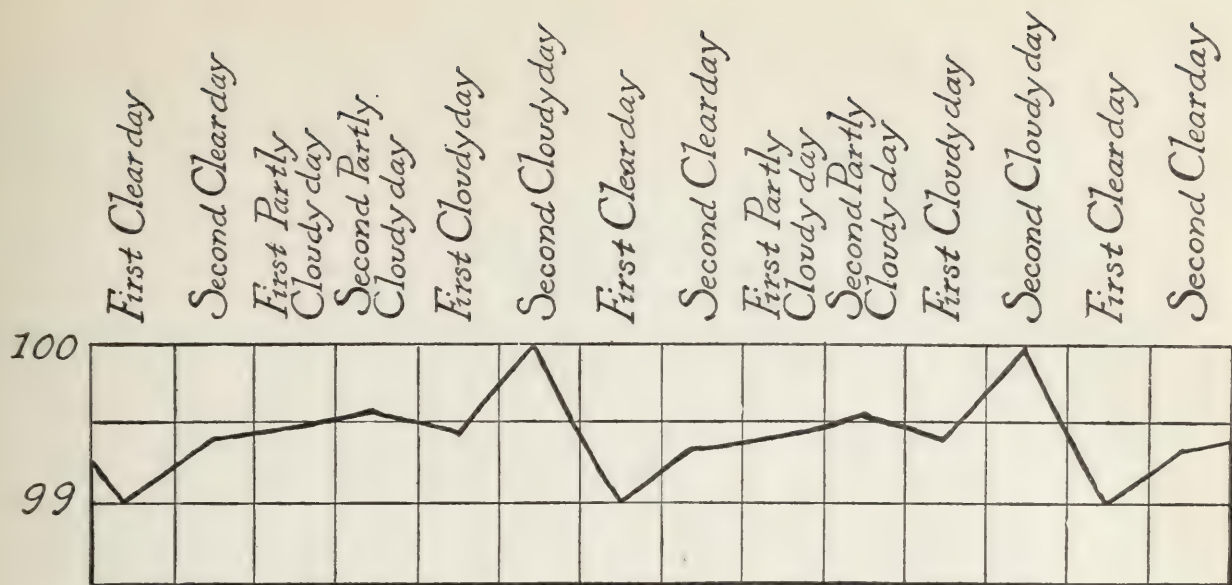 First Clear day
Second Clear day
First Partly
Cloudy day
Second Partly.
Cloudy day
First Cloudy day
Second Cloudy day
First Clear day
Second Clear day
First Partly
Cloudy day
Second Partly
Cloudy day
First Cloudy day
Second Cloudy day
First Clear day
Second Clear day
100
99